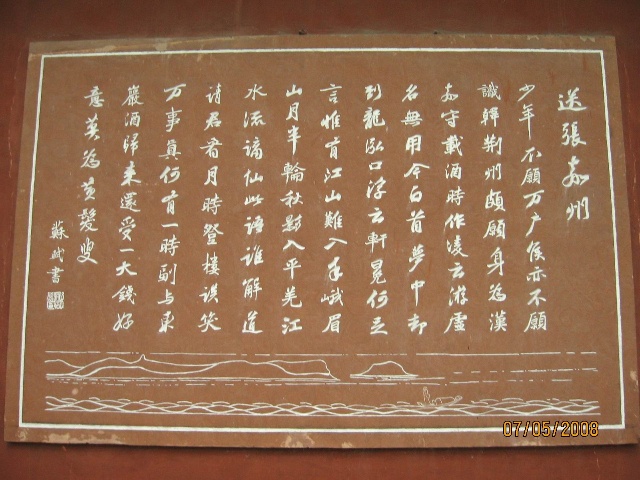 送張嘉州
少年不願万户侯亦不願
識韓荆州頗願身為漢
嘉守載酒時作凌云游虛
名無用今白首夢中却
到龍泓口浮云軒冕何足
言惟有江山難入手峨眉
山月半輪秋影入平羌江
水流謫仙此語誰解道
請君看月時登樓談笑
万事真何有一時副与東
巖酒歸来還受一大錢好
意莫為黃髮叟
蘇軾書
07/05/2008